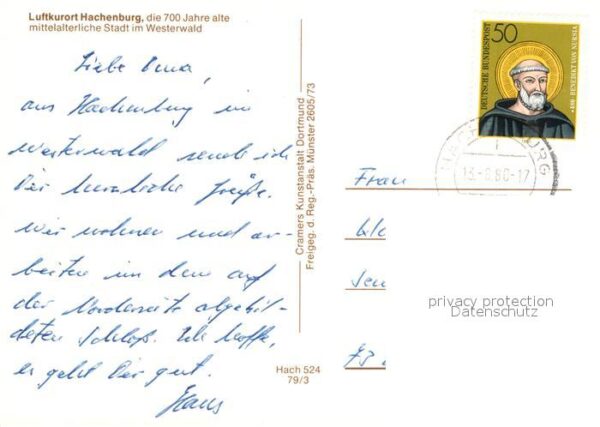 Luftkurort Hachenburg, die 700 Jahre alte
mittelalterliche Stadt im Westerwald
Liebe Oma,
aus Hachenburg im
Westerwald sende ich
Dir herzliche Grüße.
Wir wohnen und ar-
beiten in dem auf
der Vorderseite abgebil-
deten Schloß. Ich hoffe,
es geht Dir gut.
Hans
Cramers Kunstanstalt Dortmund
Freigeg. d. Reg.-Präs. Münster 2605/73
Hach 524
79/3
50
DEUTSCHE BUNDESPOST
480 BENEDIKT VON NURSIA
HACHENBURG
1
80-17
Frau
privacy protection
Datenschutz